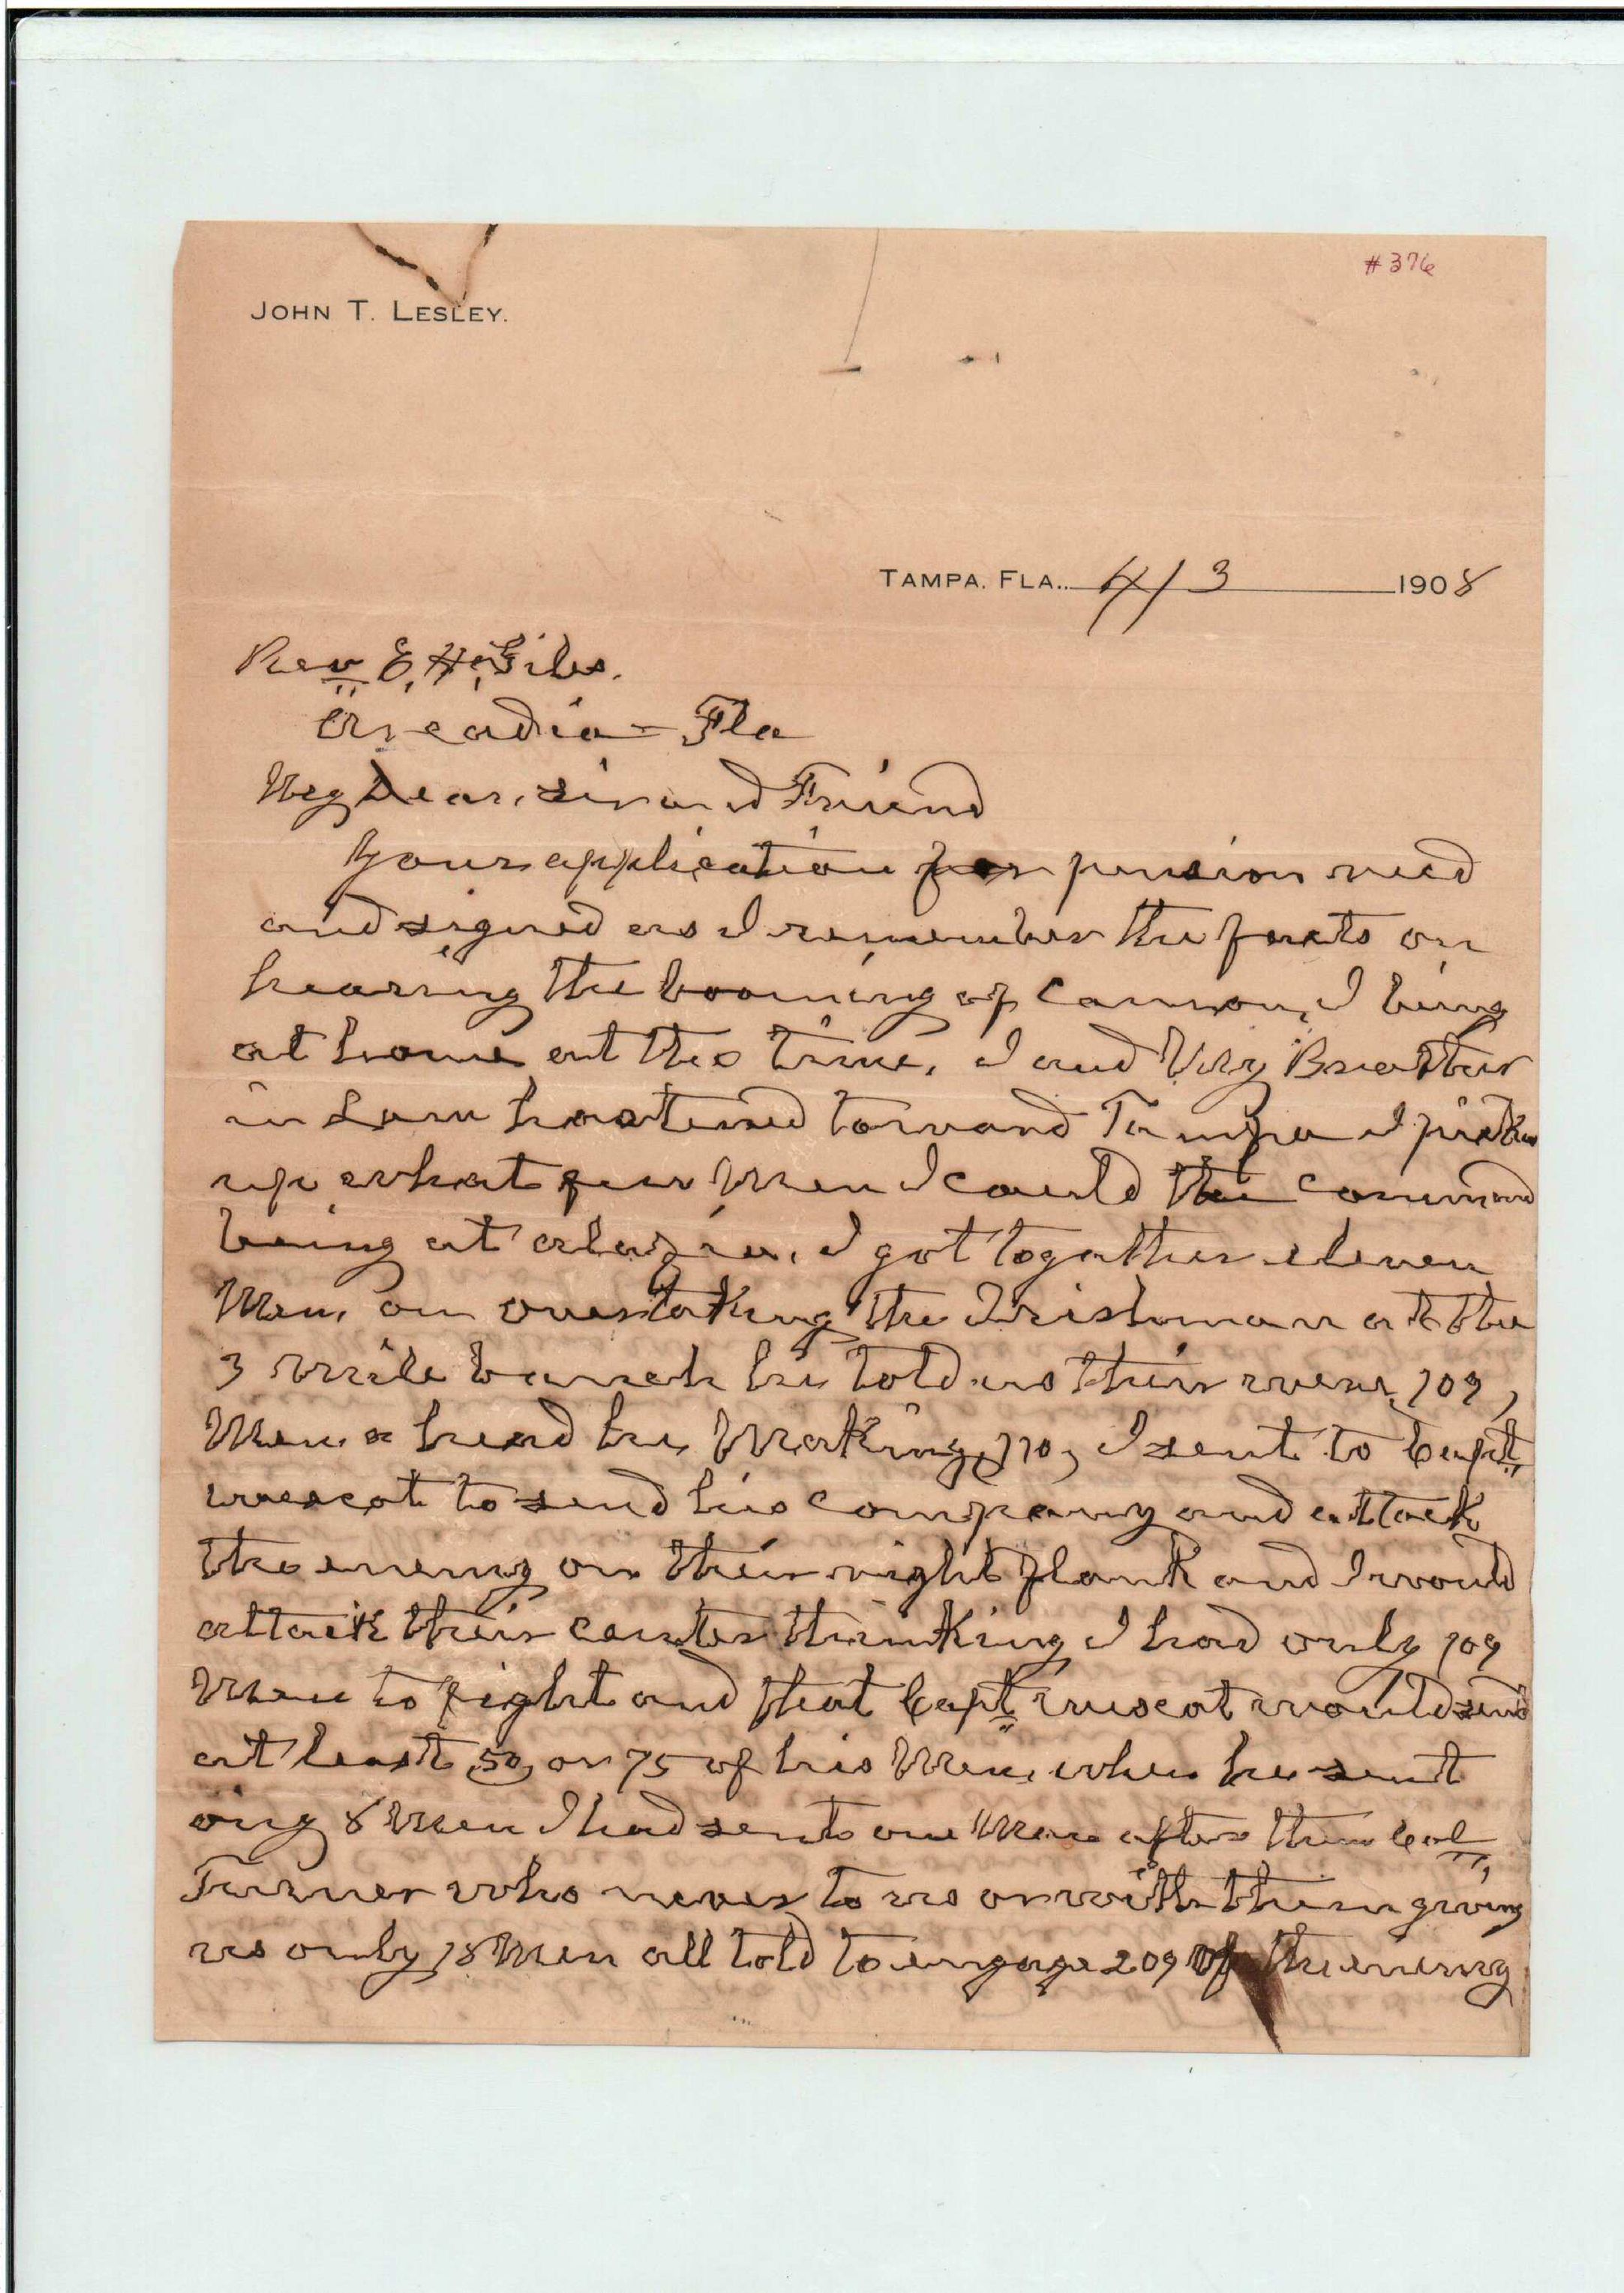 #376
JOHN T. LESLEY.
TAMPA. FLA.. 4/3 1908
Rev E, H, Giles.
Arcadia - Fla
My Dear, sir and Friend
Your application for pension recd
and signed as I remember the facts on
hearing the booming of cannon, I being
at home at the time. I and My Brother
in Law hastened toward Tampa I picked
up what few Men I could the command
being at alafia. I got together eleven
Men, on overtaking the Irishman at the
3 Mile banch he told us their were, 109,
Men a head he Making, 110, I sent to Capt
wescot to send his company and attack
the enemy on their right flank and I would
attack their center thinking I had only 109
Men to fight and that Capt wescot would send
at least 50, or 75 of his Men, when he sent
ony 8 Men I had sent one Man after them Col
Turner who never to us or with them giving
us only 18 Men all told to engage 209 of the enemy